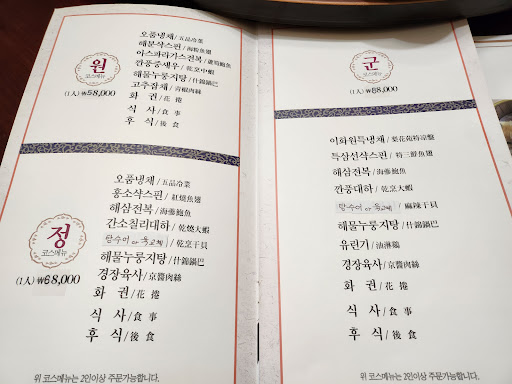 원
코스메뉴
(1人) ₩58,000
오품냉채/五品冷菜
해분샥스핀/海粉魚翅
아스파라가스전복/蘆筍鮑魚
깐풍중새우/乾烹中蝦
해물누룽지탕/什錦鍋巴
고추잡채/青椒肉絲
화 권/花 捲
식 사/食 事
후 식/後 食
정
코스메뉴
(1人) ₩68,000
오품냉채/五品冷菜
홍소샥스핀/紅燒魚翅
해삼전복/海蔘鮑魚
간소칠리대하/乾燒大蝦
탕수어 or 동고채/乾烹干貝
해물누룽지탕/什錦鍋巴
경장육사/京醬肉絲
화 권/花 捲
식 사/食 事
후 식/後 食
위 코스메뉴는 2인이상 주문가능합니다.
군
코스메뉴
(1人) ₩88,000
이화원특냉채/梨花苑特凉盤
특삼선샥스핀/特三鮮魚翅
해삼전복/海蔘鮑魚
깐풍대하/乾烹大蝦
탕수어 or 동고채/麻辣干貝
해물누룽지탕/什錦鍋巴
유린기/油淋鷄
경장육사/京醬肉絲
화 권/花 捲
식 사/食 事
후 식/後 食
위 코스메뉴는 2인이상 주문가능합니다.